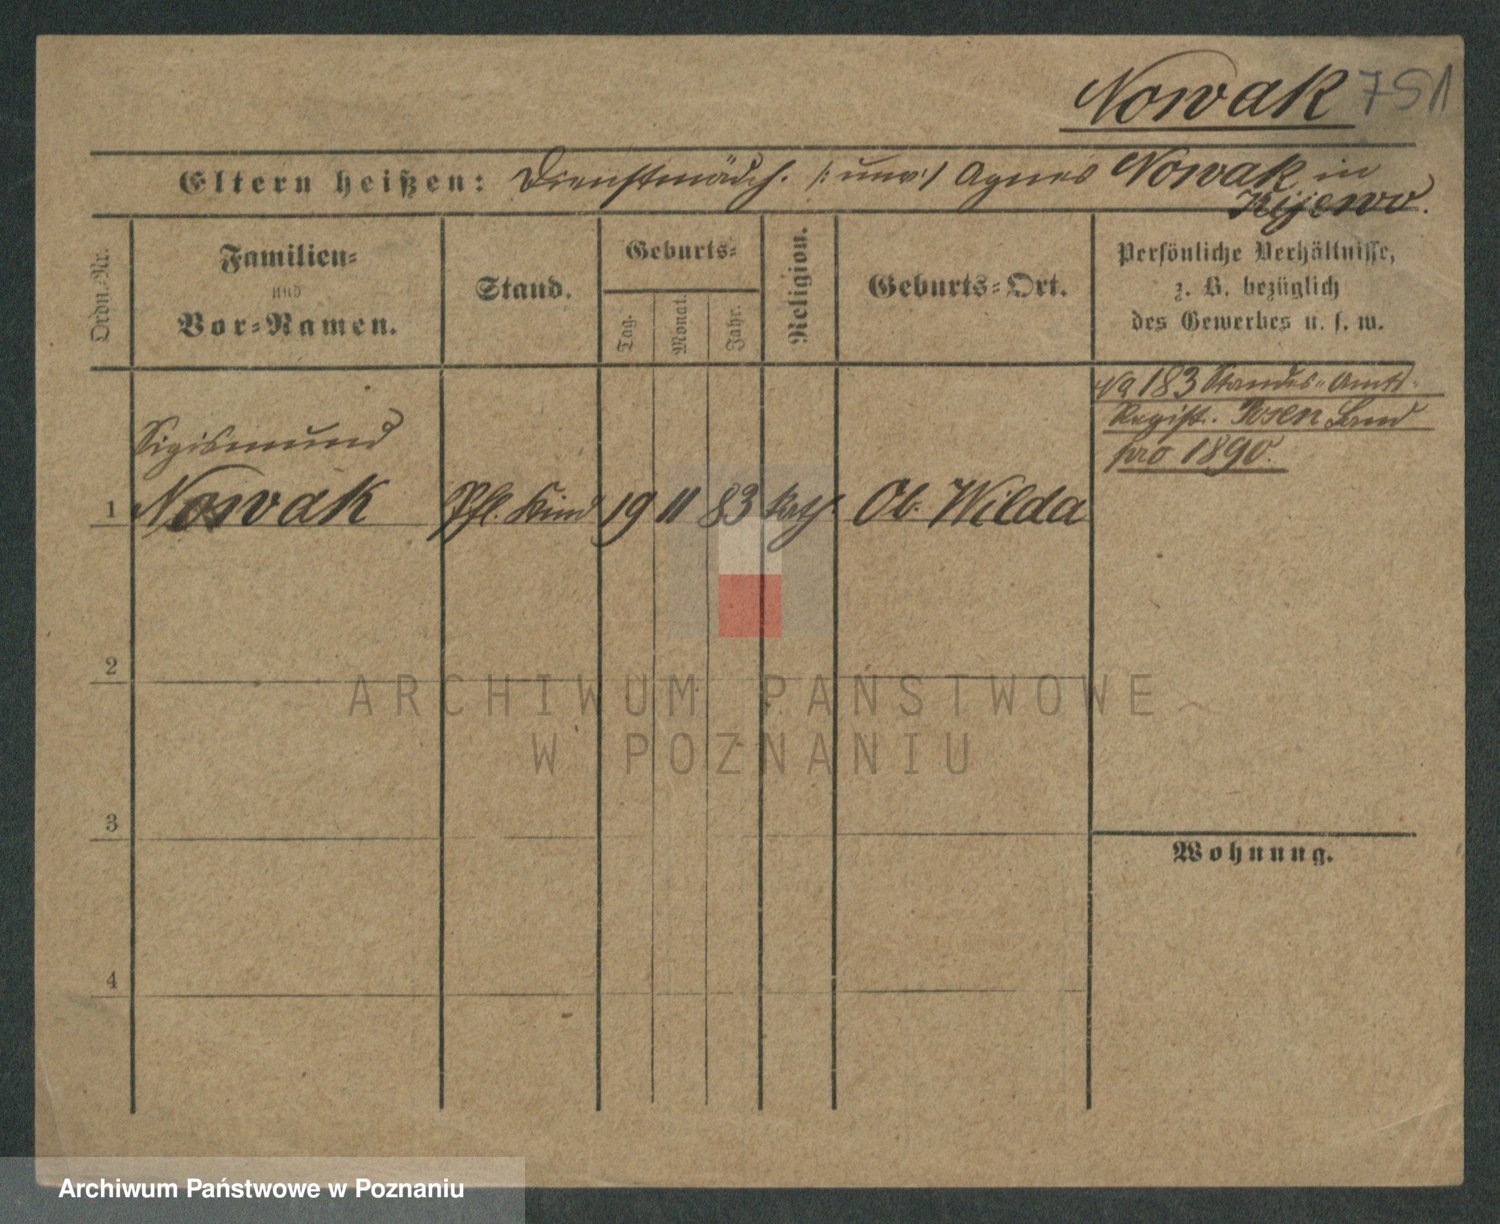 Nowak 751
Eltern heißen: Dienstmädch. /: unv :/ Agnes Nowak in
Kijewo.
Ordn.-Nr.
Familien-
und
Vor-Namen.
Stand.
Geburts-
Tag.
Monat.
Jahr.
Religion.
Geburts-Ort.
Persönliche Verhältnisse,
z. B. bezüglich
des Gewerbes u. s. w.
No 183 Standes-Amts-
Regist. Posen Land
pro 1890.
Sigismund
1 Nowak Pfl. Kind 19 11 83 kath. Ob. Wilda
2
3
4
Wohnung.
ARCHIWUM PAŃSTWOWE
W POZNANIU
Archiwum Państwowe w Poznaniu